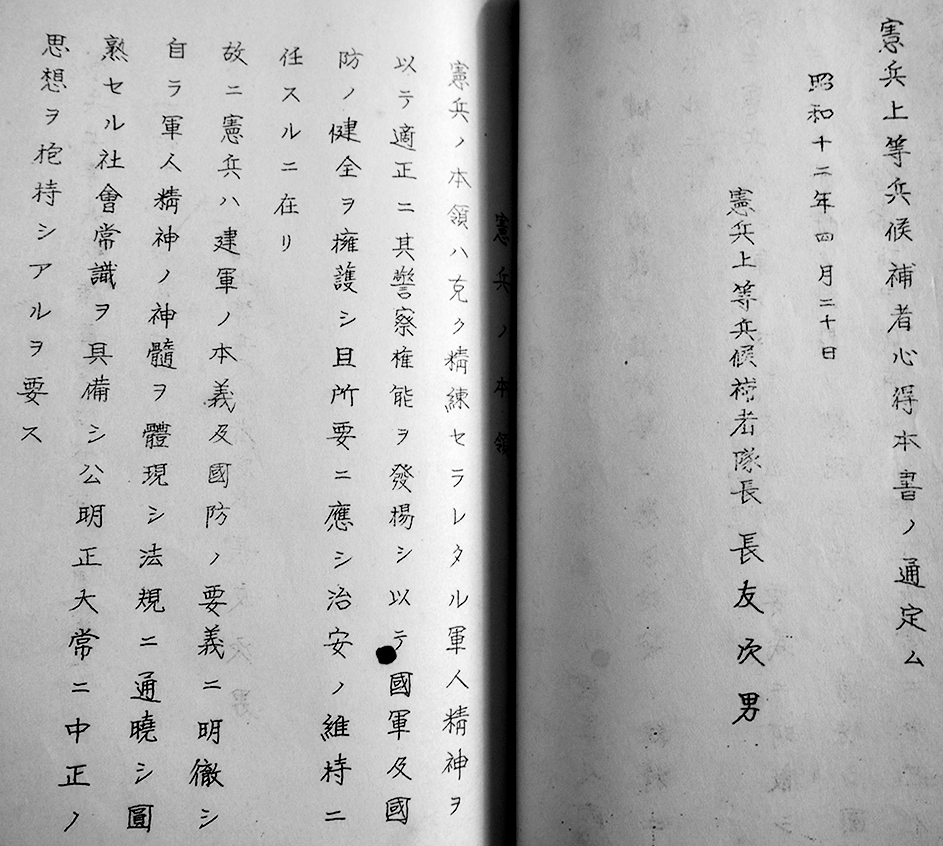 憲兵上等兵候補者心得本書ノ通定ム
昭和十二年四月二十日
憲兵上等兵候補者隊長長友次男
憲兵ノ本領
憲兵ノ本領ハ克ク精練セラレタル軍人精神ヲ
以テ適正ニ其警察権能ヲ發揚シ以テ國軍及國
防ノ健全ヲ擁護シ且所要ニ應シ治安ノ維持ニ
任スルニ在リ
故ニ憲兵ハ建軍ノ本義及國防ノ要義ニ明徹シ
自ラ軍人精神ノ神髓ヲ體現シ法規ニ通曉シ圓
熟セル社會常識ヲ具備シ公明正大常ニ中正ノ
思想ヲ抱持シアルヲ要ス